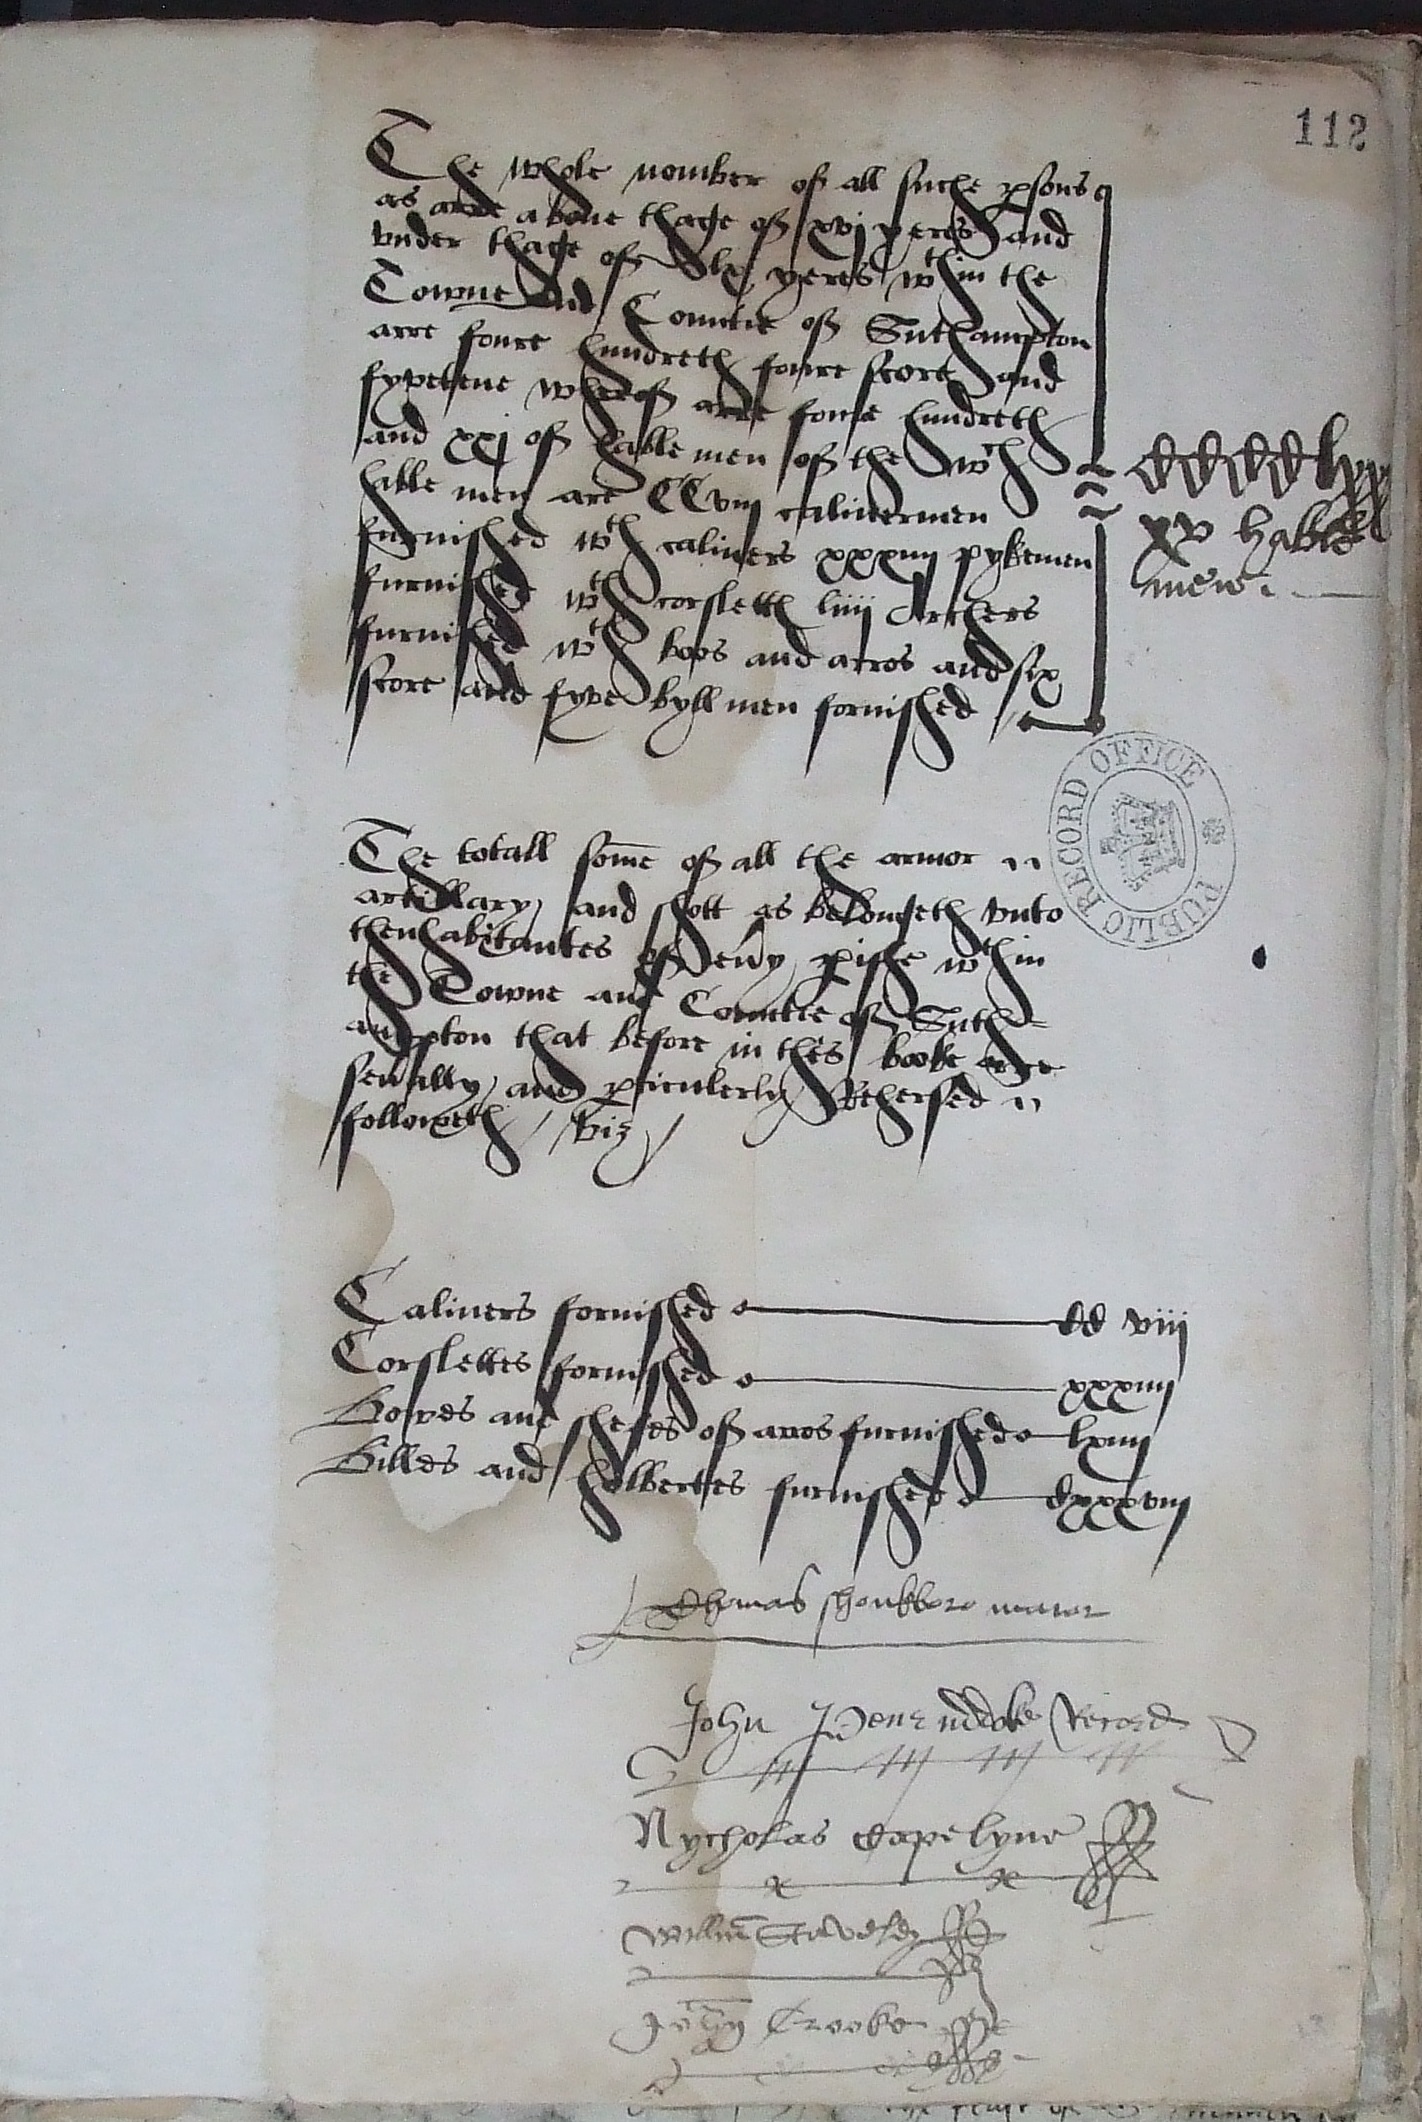 112
The whole nomber of all suche psons
as arre above thage of xvj yeres and
vnder thage of lx yeres wthin the
Towne and Countie of Suthampton
arre foure hundreth foure score and
fyvetene wherof arre foure hundreth
and xxj of hable men of the wch
hable men are CCviij calivermen
furnished wth calivers xxxiiij pykemen
furnished wth corslettes liiij Archers
furnished wth boos and arros and six
score and fyve byll men fornished
CCCClxxx
xv hable
mene.
The totall some of all the armor
artillary and shott as belongeth vnto
thenhabitantes of evy pishe wthin
the Towne and Countie of Suth=
ampton that before in thes booke arre
sevally and pticulerly Rehersed
followeth / viz /
PUBLIC RECORD OFFICE
Calivers fornished CC viij
Corslettes fornished xxxiiij
Bowes and sheves of arros furnished lxiiij
Billes and holbertes furnished Cxxxviij
Thomas maior
John Record
Nycholas Capelyne
Willm Staveley
John Crooke